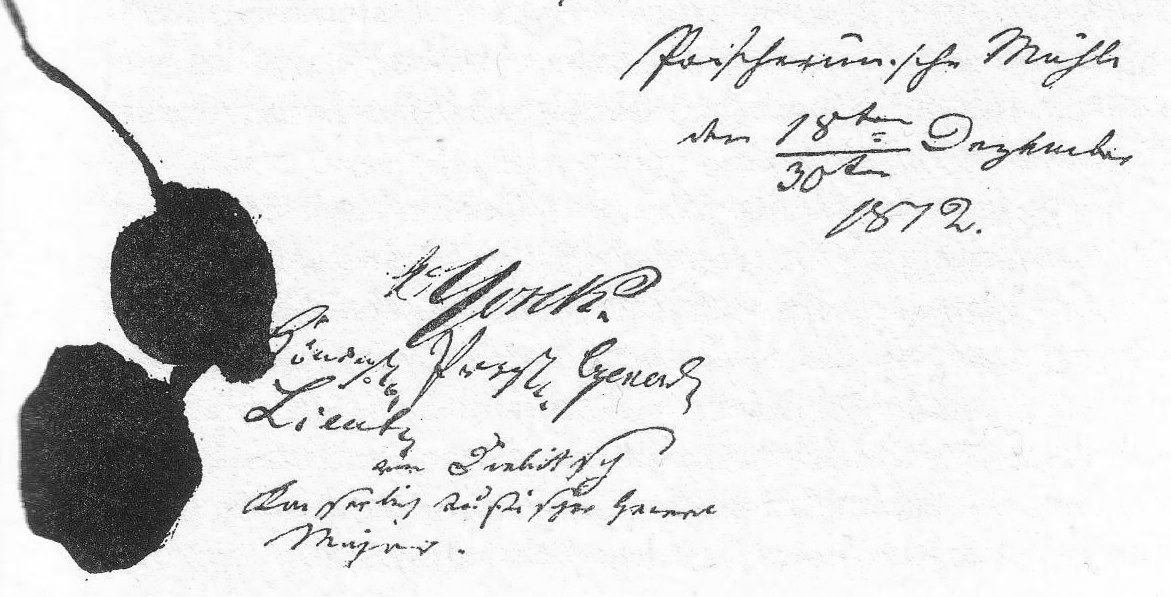 Poischerunsche Mühle
den 18ten/30ten Dezember
1812.
v. Yorck.
Königl. Preuß. General
Lieut.
von Diebitsch
Kaiserlich Russischer General
Major.